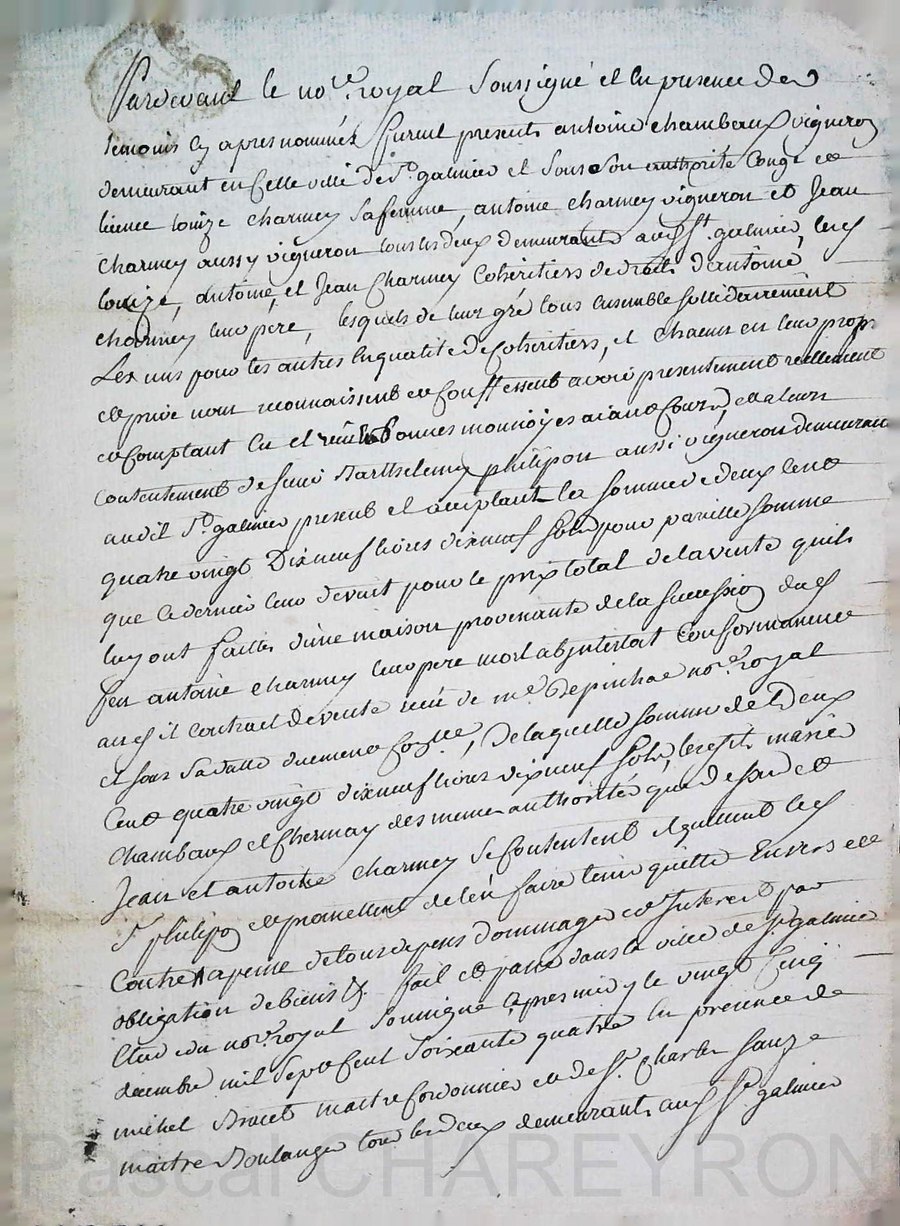 Pardevant le no.re royal Soussigné et en presence des
temoins cy apres nommés furent presents antoine chambeaux vigneron
demeurant en cette ville de St. galmier et sous son authorité Congé et
licence louize charmey sa femme, antoine charmey vigneron et Jean
charmey aussy vigneron tous les deux demeurants audt St. galmier, les
louize, antoine, et Jean Charmey Cohéritiers de droits d'antoine
charmey leur pere, lesquels de leur gré tous ensemble sollidairement
Les uns pour les autres en qualité de Cohéritiers, et chacun en leur propre
et privé nom reconnaissent et Confessent avoir presentement reellement
et Comptant eu et reçu en bonnes monnoÿes aiant Cours, et a leur
contentement de sieur Barthelemy philipon aussi vigneron demeurant
audit St. galmier present et acceptant la somme de deux Cent
quatre vingt Dixneuf livres dixneuf sols pour pareille somme
que ce dernier leur devait pour le prix total de la vente quils
luy ont faitte d'une maison provenante de la succession dud
feu antoine charmey leur pere mort abjntestat Conformement
audit Contract de vente reçu de me. Depinhac no.re royal
et sous sa datte duement Con.llé, De laquelle somme de Deux
Cent quatre vingt dixneuf livres dixneuf sols, lesdits mariés
Chambeaux et Chermay des memes authorités que dessus et
Jean et antoine charmey se Contentent et quittent led
Sr. philipon et promettent de l'en faire tenir quitte Envers et
Contre a peine de tous depens dommages et Interets par
obligation de biens &. fait et passé dans la ville de St. galmier
Etude du no.re royal Soussigné apres midy le vingt Cinq
decembre mil sept Cent Soixante quatre En presence de
michel maitre Cordonnier et de Sr. Charles Sauze
maitre Boulanger tous les deux demeurants aud St. galmier
Pascal CHAREYRON